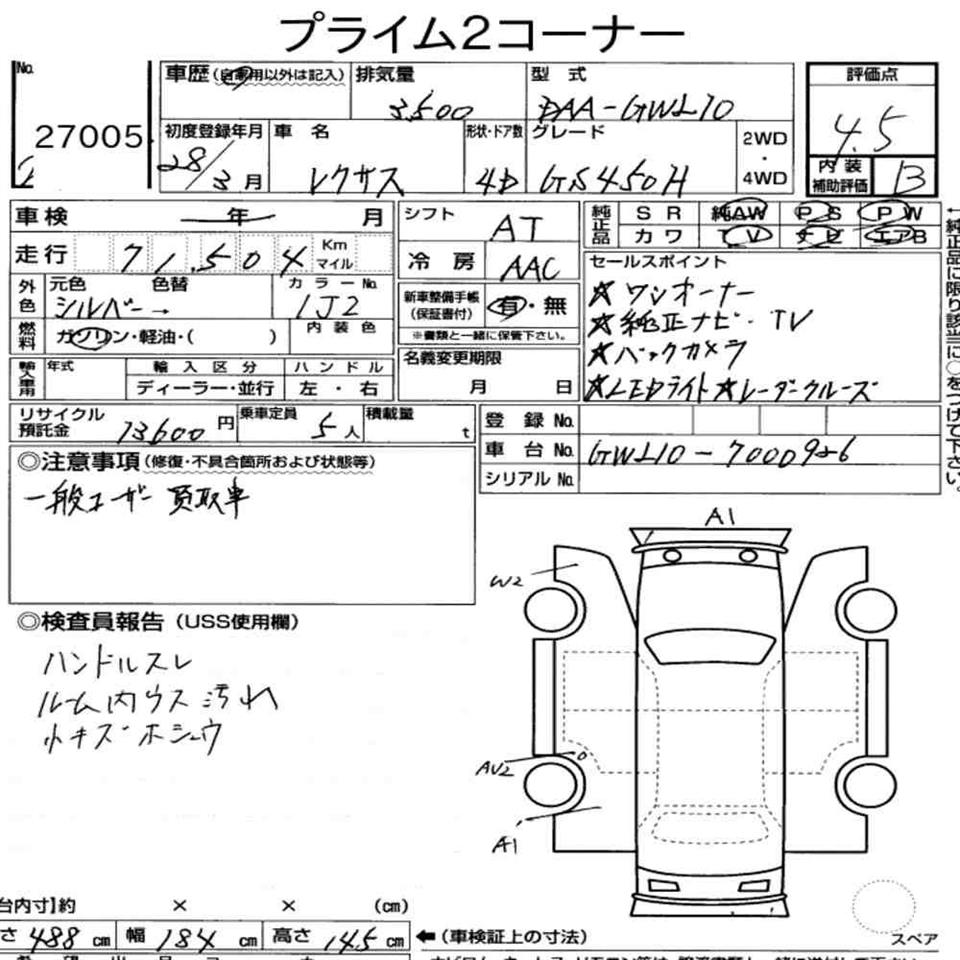 プライム2コーナー
No.
27005
車歴(自家用以外は記入)
排気量
3500
型 式
DAA-GWL10
評価点
4.5
初度登録年月
28/3月
車 名
レクサス
形状・ドア数
4D
グレード
GS450H
2WD
・
4WD
内 装
補助評価
B
車 検 年 月
シフト
AT
純正品
S R 純AW P S P W
カワ T V ナビ エアB
走 行 71,504 Km
マイル
冷 房
AAC
セールスポイント
★ワンオーナー
★純正ナビ・TV
★バックカメラ
★LEDライト★レーダークルーズ
外色
元色 色替
シルバー→
カラーNo.
1J2
新車整備手帳
(保証書付)
有・無
※書類と一緒に保管下さい。
燃料
ガソリン・軽油・( )
内 装 色
名義変更期限
月 日
輸入車用
年式
輸 入 区 分
ディーラー・並行
ハ ン ド ル
左 ・ 右
リサイクル
預託金
13600円
乗車定員
5人
積載量
t
登 録 No.
車 台 No.
GWL10-7000926
シリアル No.
◎注意事項(修復・不具合箇所および状態等)
一般ユーザー買取車
◎検査員報告(USS使用欄)
ハンドルスレ
ルーム内ウス汚れ
小キズ ホシュウ
A1
W2
AU2
A1
台内寸]約 × × (cm)
さ 488 cm 幅 184 cm 高さ 145 cm
←(車検証上の寸法)
スペア
←純正品に限り該当に○をつけて下さい。